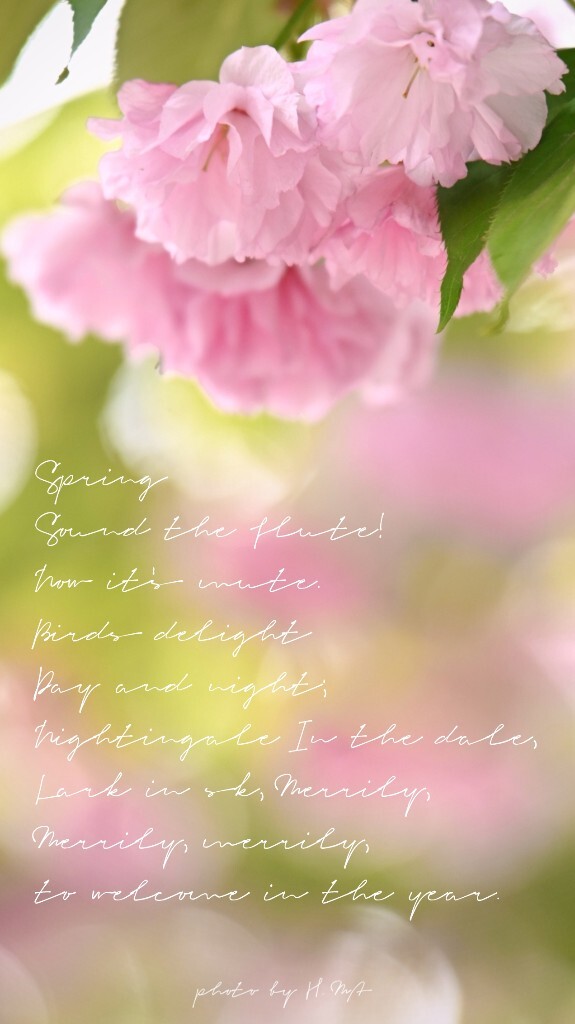 Spring
Sound the flute!
Now it's mute.
Birds delight
Day and night;
Nightingale In the dale,
Lark in sk, Merrily,
Merrily, merrily,
to welcome in the year.
photo by H.MA